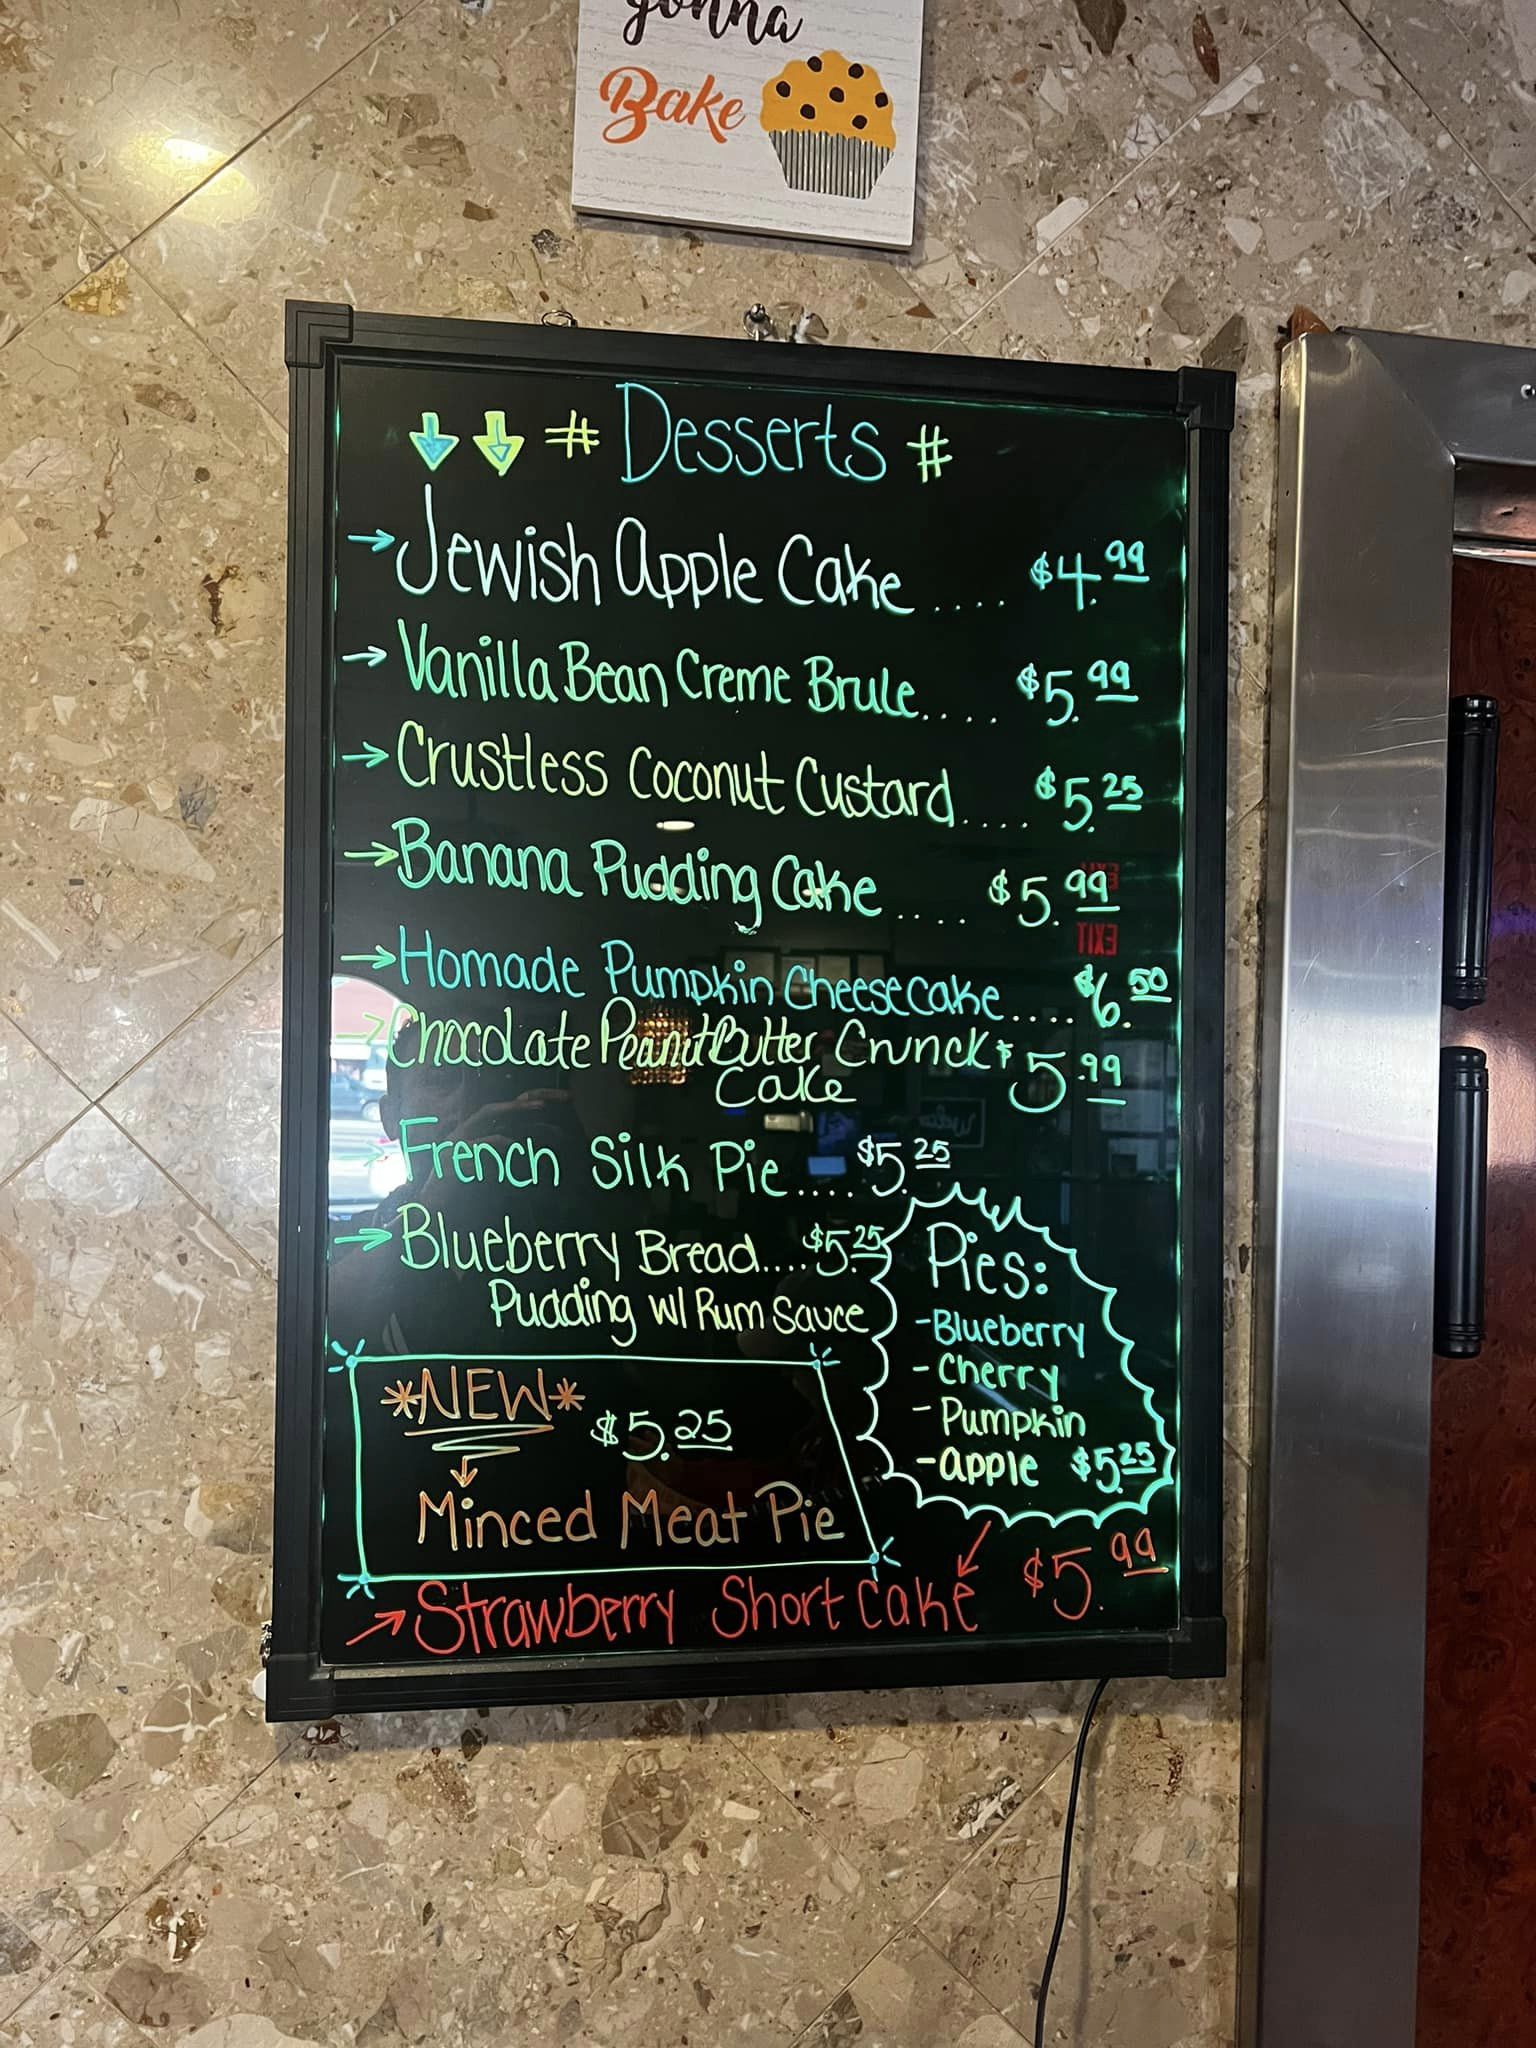 gonna
Bake
# Desserts #
→ Jewish Apple Cake .... $4.99
→ Vanilla Bean Creme Brule.... $5.99
→ Crustless Coconut Custard.... $5.25
→ Banana Pudding Cake .... $5.99
→ Homade Pumpkin Cheesecake.... $6.50
→ Chocolate Peanut Butter Crunck $5.99
Cake
→ French Silk Pie.... $5.25
→ Blueberry Bread.... $5.25
Pudding w/ Rum Sauce
Pies:
- Blueberry
- Cherry
- Pumpkin
- Apple $5.25
*NEW* $5.25
Minced Meat Pie
→ Strawberry Short Cake $5.99
EXIT